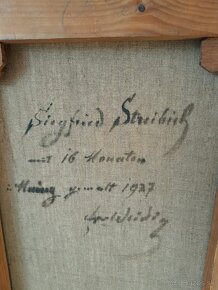 Siegfried Streibich
mit 16 Monaten
gemalt 1927